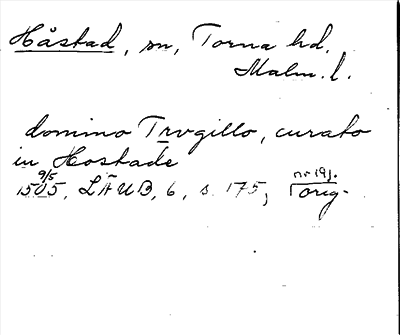 Håstad, sn, Torna hd.
Malm. l.
domino Trvgillo, curato
in Hostade
9/5
1505, LÄUB, 6, s. 175, nr 191. orig.